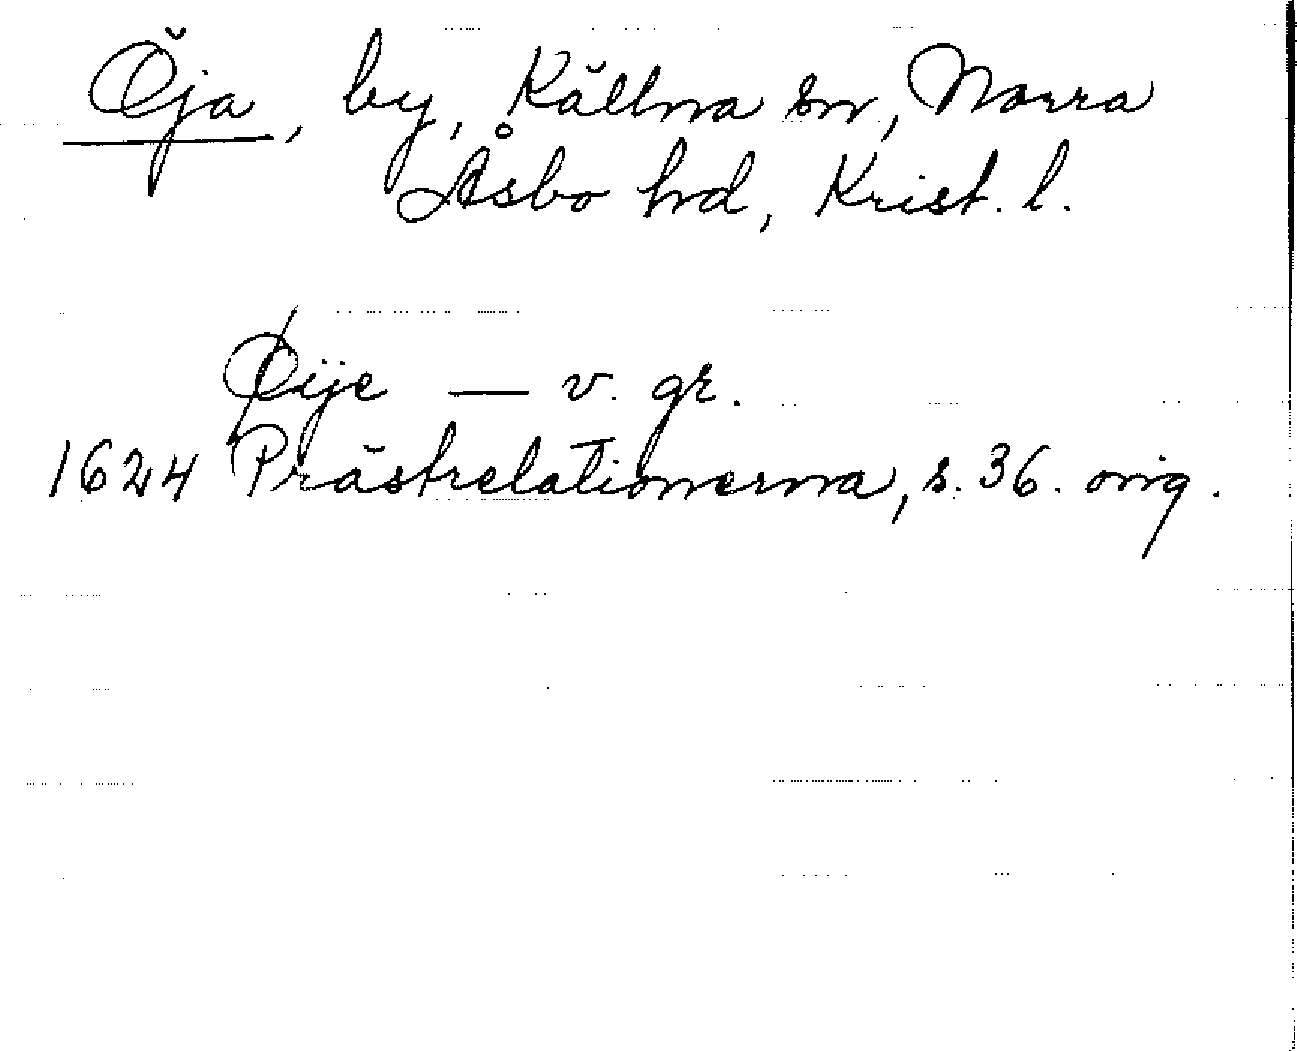 Öja, by, Källna sn, Norra
Åsbo hd, Krist. l.
Øije — v. gr.
1624 Prästrelationerna, s. 36. orig.